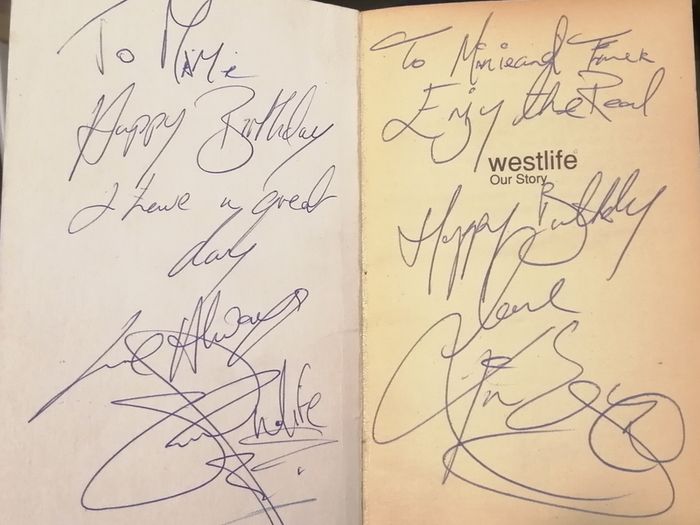 To
Happy Birthday
& have a great
day
Love Always
To Minie and
Enjoy the Read
westlife
Our Story
Happy Birthday
Love